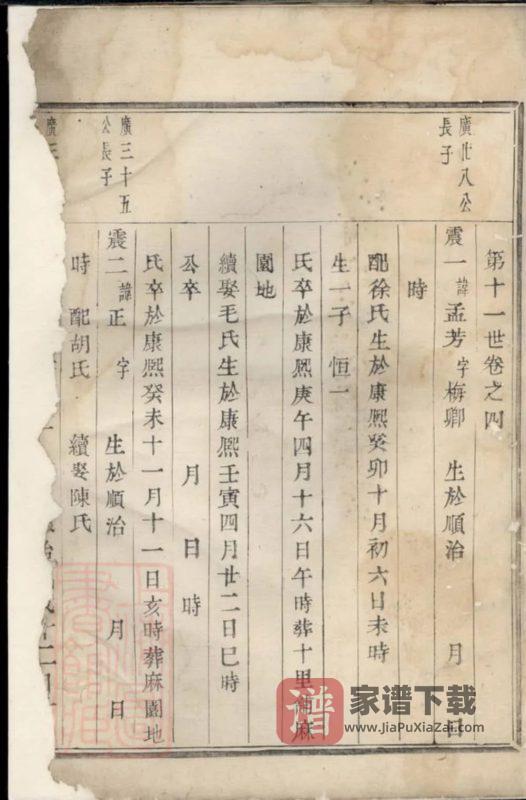 第十一世卷之四
廣廿八公
長子
震一諱孟芳字梅卿 生於順治 月 日
時
配徐氏生於康熙癸卯十月初六日未時
生一子 恒一
氏卒於康熙庚午四月十六日午時葬十里 麻
園地
續娶毛氏生於康熙壬寅四月廿二日巳時
公卒 月 日 時
氏卒於康熙癸未十一月十一日亥時葬麻園地
廣三十五
公長子
震二諱正 字 生於順治 月 日
時 配胡氏 續娶陳氏
廣三
譜
家谱下载
www.JiaPuXiaZai.com